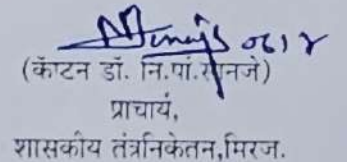 (कॅप्टन डॉ. नि.पां.सोनजे)
प्राचार्य,
शासकीय तंत्रनिकेतन,मिरज.